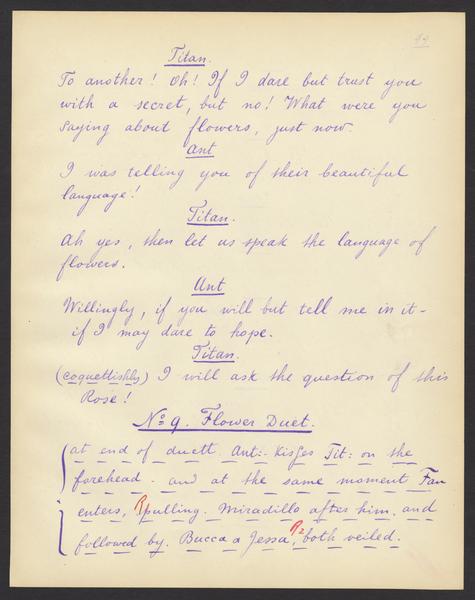 Titan.
To another! Oh! If I dare but trust you
with a secret, but no! What were you
saying about flowers, just now.
Ant
I was telling you of their beautiful
language!
Titan.
Ah yes, then let us speak the language of
flowers.
Ant
Willingly, if you will but tell me in it-
if I may dare to hope.
Titan.
(coquettishly) I will ask the question of this
Rose!
No 9. Flower Duet.
at end of duett. Ant:- kisses Tit: on the
forehead. and at the same moment Fan
enters, R pulling. Miradillo after him. and
followed by. Bucca & Jessa, R2 both veiled.